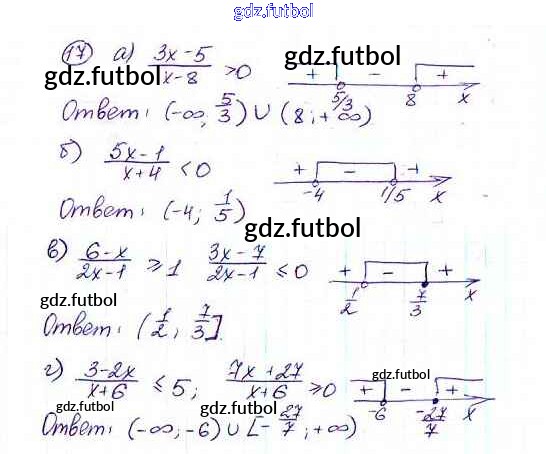 gdz.futbol
17 а) (3x-5)/(x-8) >0 + - + 5/3 8 x
gdz.futbol gdz.futbol
Ответ: (-∞; 5/3) ∪ (8; +∞)
б) (5x-1)/(x+4) <0 + - + -4 1/5 x
Ответ: (-4; 1/5)
gdz.futbol
в) (6-x)/(2x-1) ⩾1 (3x-7)/(2x-1) ⩽0 + - + 1/2 7/3 x
gdz.futbol
Ответ: (1/2; 7/3]
gdz.futbol
г) (3-2x)/(x+6) ⩽5; (7x+27)/(x+6) ⩾0 + - + -6 -27/7 x
gdz.futbol
gdz.futbol gdz.futbol
Ответ: (-∞; -6) ∪ [-27/7; +∞)